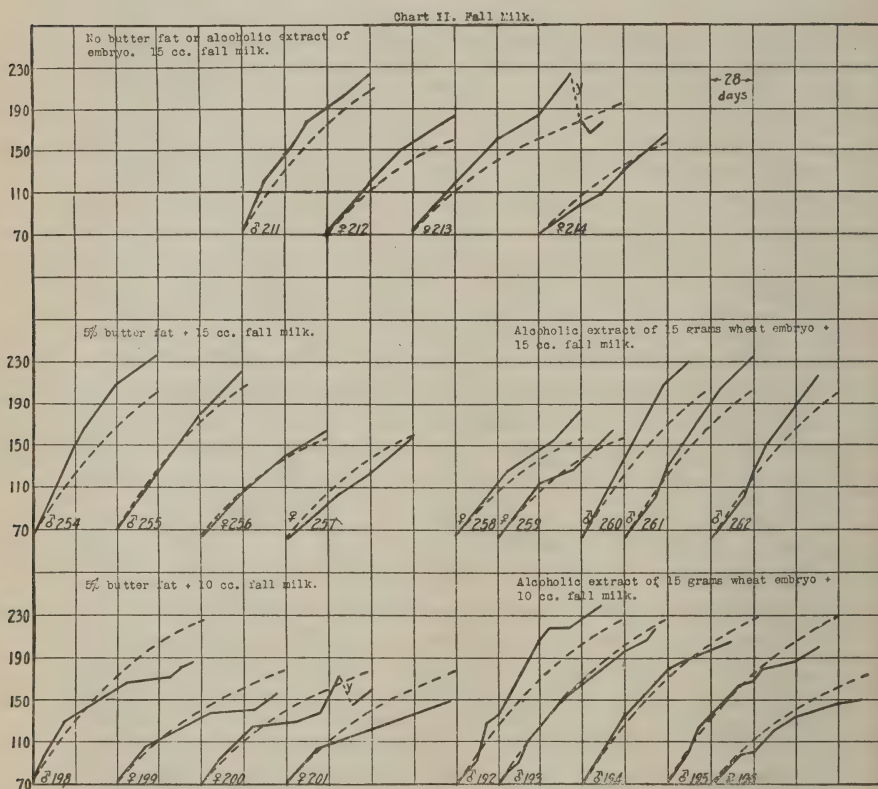 Chart II. Fall Milk.
No butter fat or alcoholic extract of
embryo. 15 cc. fall milk.
230
190
150
110
70
28
days
y
♂211
♀212
♀213
♀214
5% butter fat + 15 cc. fall milk.
Alcoholic extract of 15 grams wheat embryo +
15 cc. fall milk.
230
190
150
110
70
♂254
♂255
♀256
♀257
♀258
♀259
♂260
♂261
♂262
5% butter fat + 10 cc. fall milk.
Alcoholic extract of 15 grams wheat embryo +
10 cc. fall milk.
230
190
150
110
70
y
♂198
♀199
♀200
♀201
♂192
♂193
♂194
♂195
196